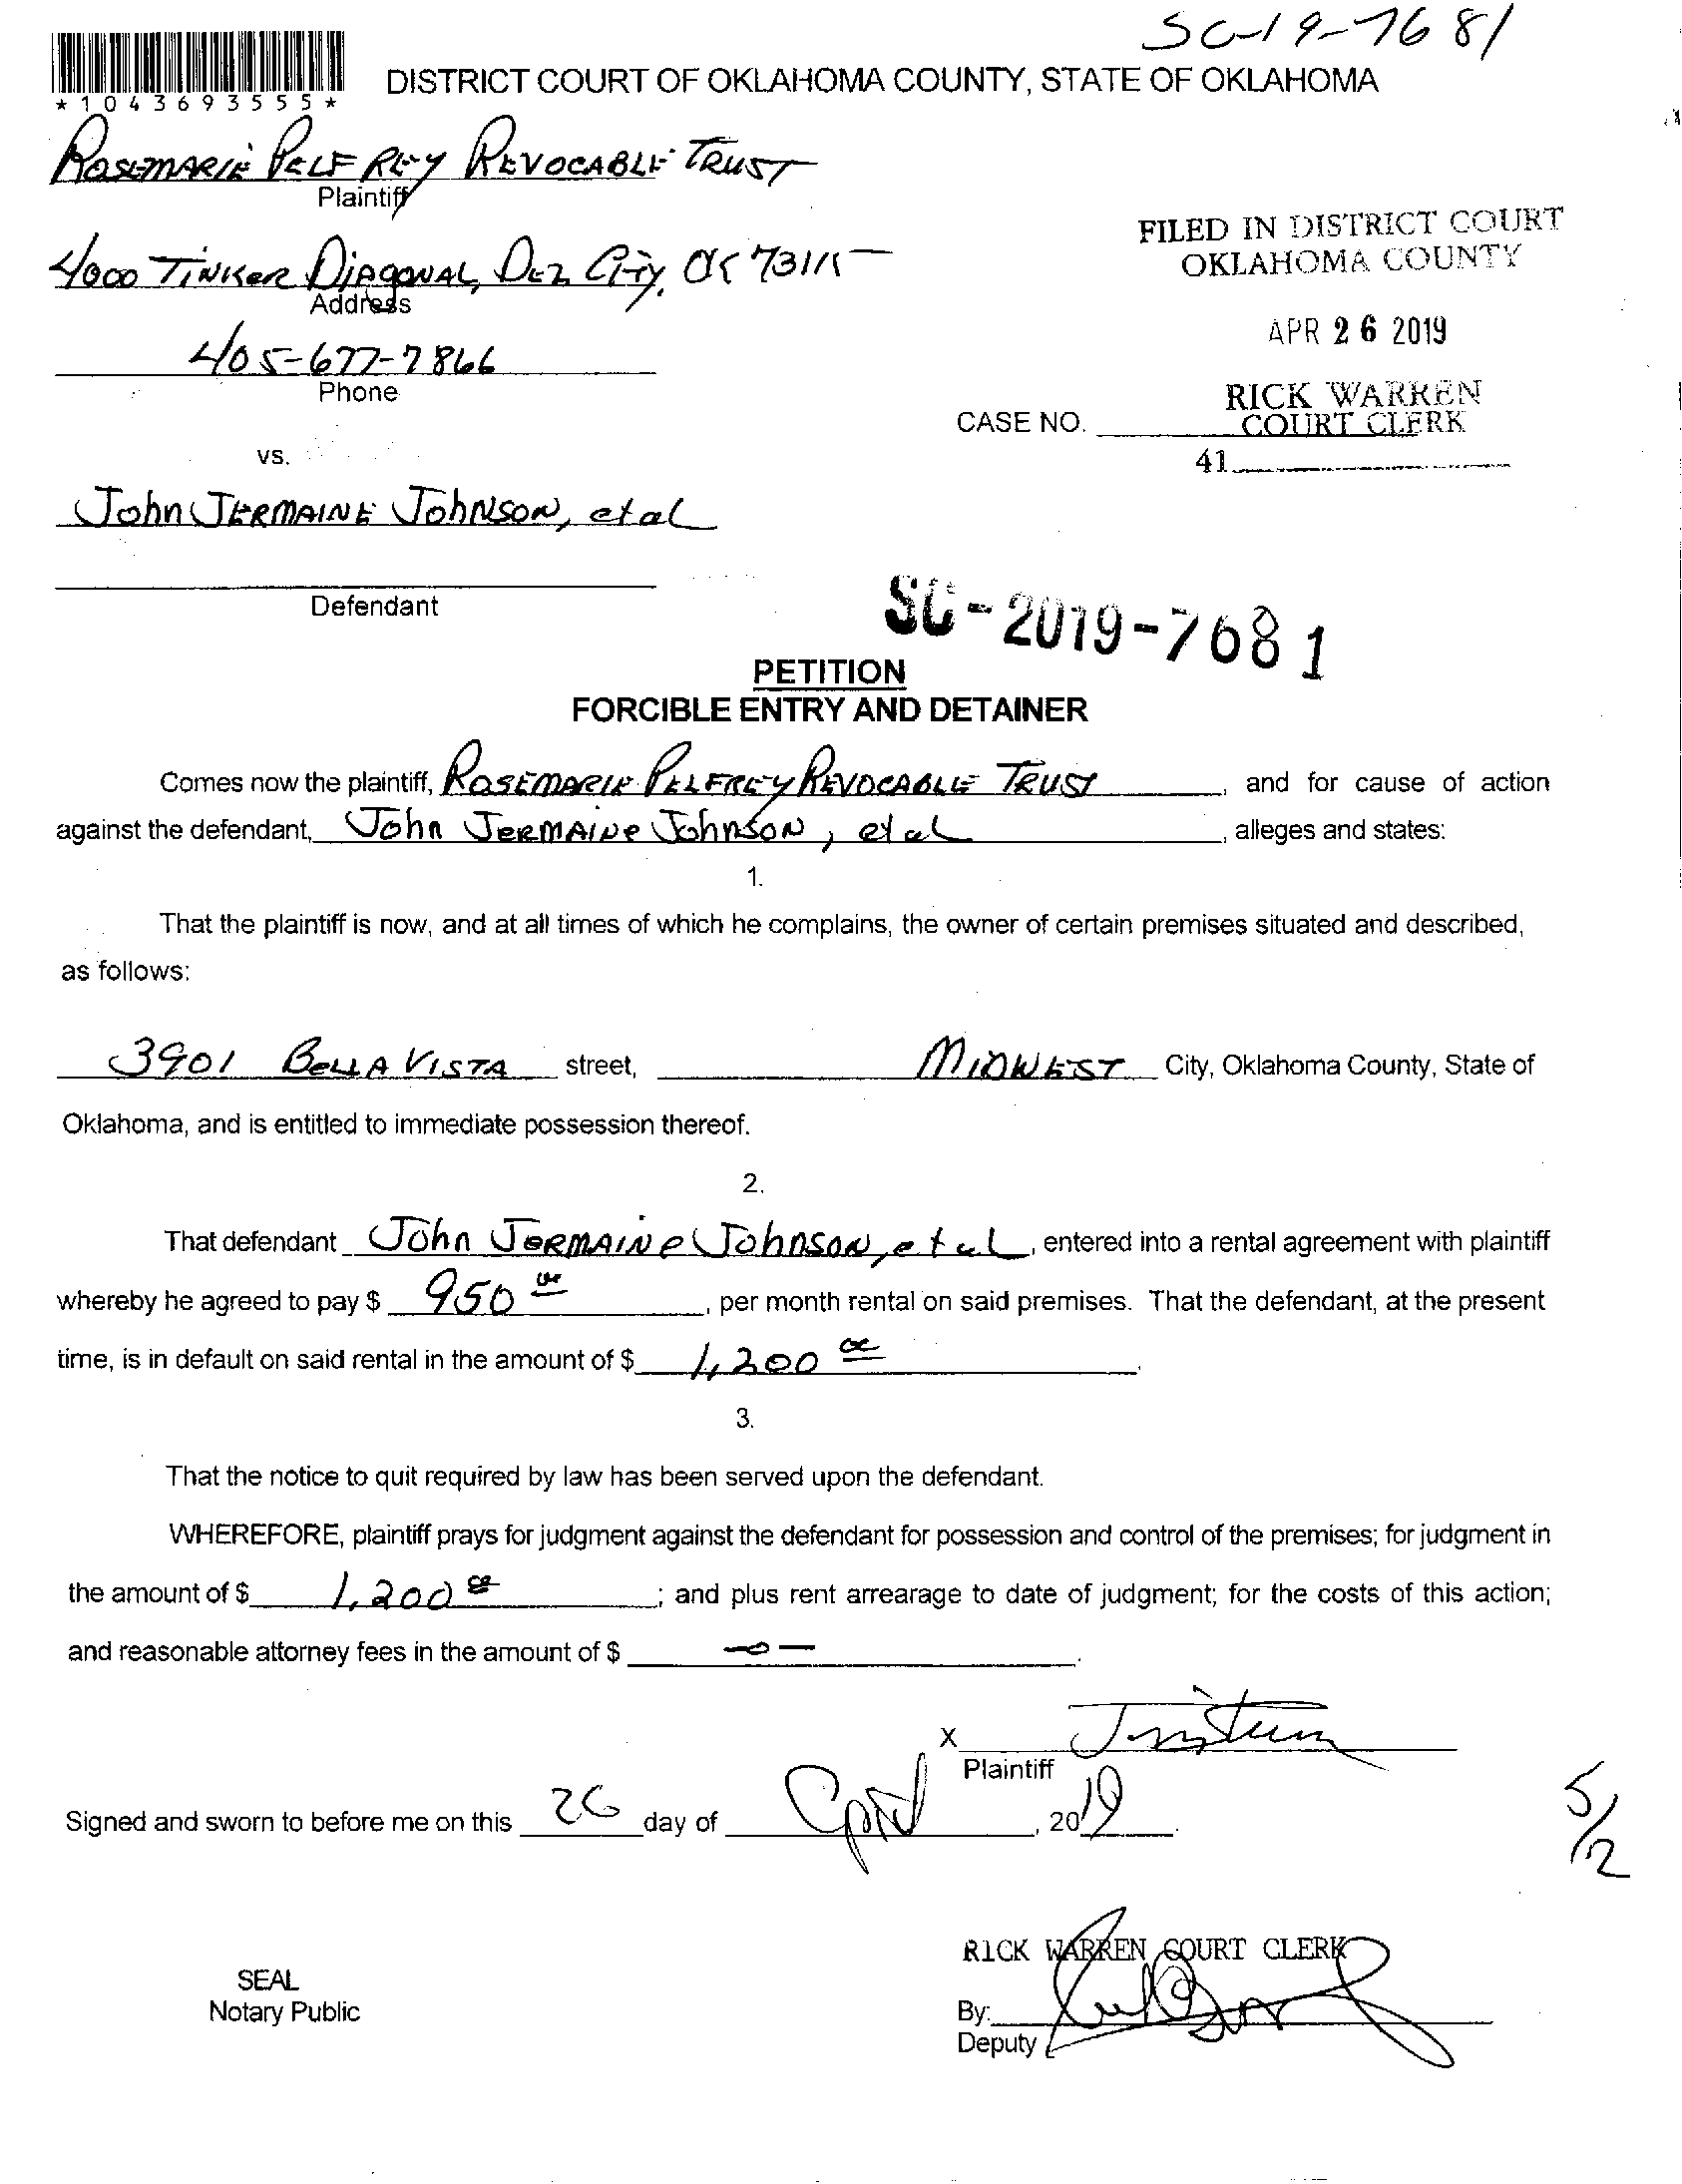 SC-19-7681
*1043693555*
DISTRICT COURT OF OKLAHOMA COUNTY, STATE OF OKLAHOMA
ROSEMARIE PELFREY REVOCABLE TRUST
Plaintiff
4000 TINKER DIAGONAL, DEL CITY, OK 73115
Address
405-677-7866
Phone
FILED IN DISTRICT COURT
OKLAHOMA COUNTY
APR 26 2019
RICK WARREN
COURT CLERK
CASE NO.
41
vs.
John JERMAINE JohNSON, et al
Defendant
SC-2019-7681
PETITION
FORCIBLE ENTRY AND DETAINER
Comes now the plaintiff, ROSEMARIE PELFREY REVOCABLE TRUST, and for cause of action
against the defendant, John JERMAINE JohnSON, et al, alleges and states:
1.
That the plaintiff is now, and at all times of which he complains, the owner of certain premises situated and described,
as follows:
3901 BELLA VISTA street, MIDWEST City, Oklahoma County, State of
Oklahoma, and is entitled to immediate possession thereof.
2.
That defendant John JERMAINE JohnSON, et al, entered into a rental agreement with plaintiff
whereby he agreed to pay $ 950 00, per month rental on said premises. That the defendant, at the present
time, is in default on said rental in the amount of $ 1,200 00.
3.
That the notice to quit required by law has been served upon the defendant.
WHEREFORE, plaintiff prays for judgment against the defendant for possession and control of the premises; for judgment in
the amount of $ 1,200 00; and plus rent arrearage to date of judgment; for the costs of this action;
and reasonable attorney fees in the amount of $ -0-.
X
Plaintiff
Signed and sworn to before me on this 26 day of April, 2019.
5/2
RICK WARREN COURT CLERK
SEAL
Notary Public
By:
Deputy